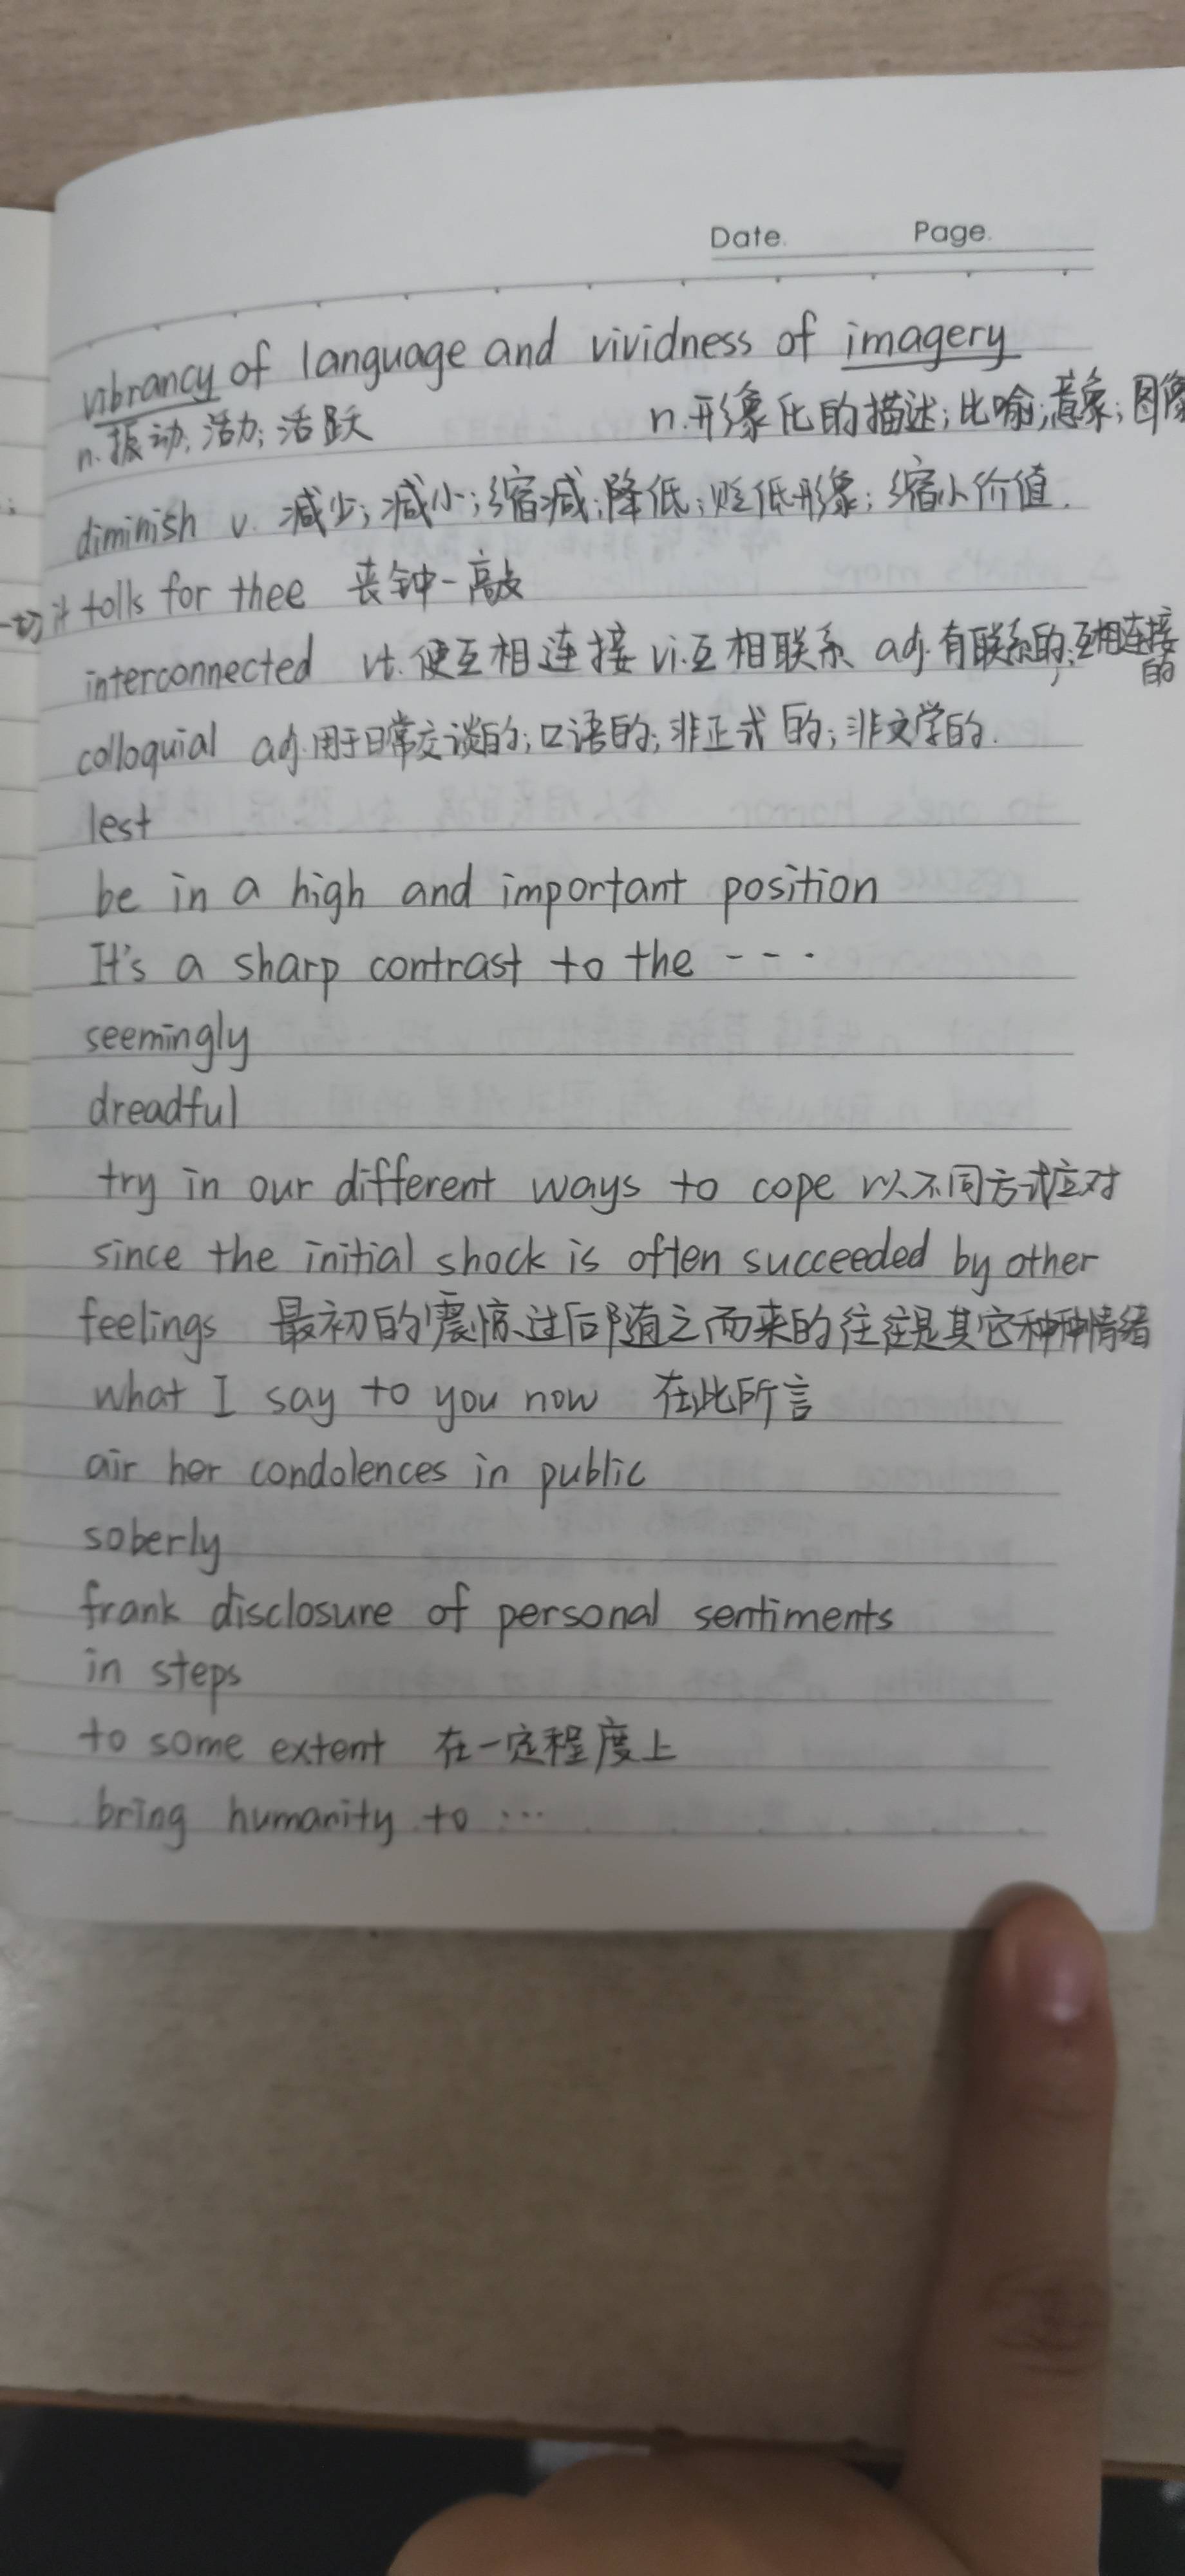 Date. Page.
vibrancy of language and vividness of imagery
n.振动;活力;活跃 n.形象化的描述;比喻;意象;图像
diminish v. 减少;减小;缩减;降低;贬低形象;缩小价值.
it tolls for thee 丧钟一敲
interconnected vt.使互相连接 vi.互相联系 adj.有联系的;互相连接的
colloquial adj.用于日常交谈的;口语的;非正式的;非文学的.
lest
be in a high and important position
It's a sharp contrast to the ---.
seemingly
dreadful
try in our different ways to cope 以不同方式应对
since the initial shock is often succeeded by other
feelings 最初的震惊过后随之而来的往往是其它种种情绪
what I say to you now 在此所言
air her condolences in public
soberly
frank disclosure of personal sentiments
in steps
to some extent 在一定程度上
bring humanity to ...